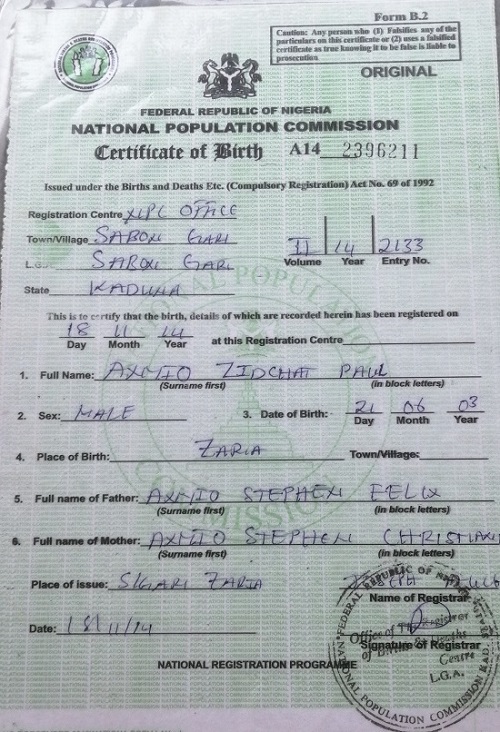 Form B.2
Caution: Any person who (1) Falsifies any of the
particulars on this certificate or (2) uses a falsified
certificate as true knowing it to be false is liable to
prosecution
ORIGINAL
FEDERAL REPUBLIC OF NIGERIA
NATIONAL POPULATION COMMISSION
Certificate of Birth A14 2396211
Issued under the Births and Deaths Etc. (Compulsory Registration) Act No. 69 of 1992
Registration Centre NPC OFFICE
Town/Village SABON GARI
II 14 2133
Volume Year Entry No.
L.G. SABON GARI
State KADUNA
This is to certify that the birth, details of which are recorded herein has been registered on
18 11 14
Day Month Year at this Registration Centre
1. Full Name: ZIDCHAT PAUL
(Surname first) (in block letters)
2. Sex: MALE 3. Date of Birth: 21 06 03
Day Month Year
4. Place of Birth: ZARIA Town/Village:
5. Full name of Father: STEPHEN FELIX
(Surname first) (in block letters)
6. Full name of Mother: STEPHEN
(Surname first) (in block letters)
Place of issue: S/GARI ZARIA
Name of Registrar
Date: 18/11/14
Signature of Registrar
NATIONAL REGISTRATION PROGRAMME
FEDERAL REPUBLIC OF NIGERIA
Office of The Registrar
of Births & Deaths
Centre
L.G.A.
NATIONAL POPULATION COMMISSION KAD.